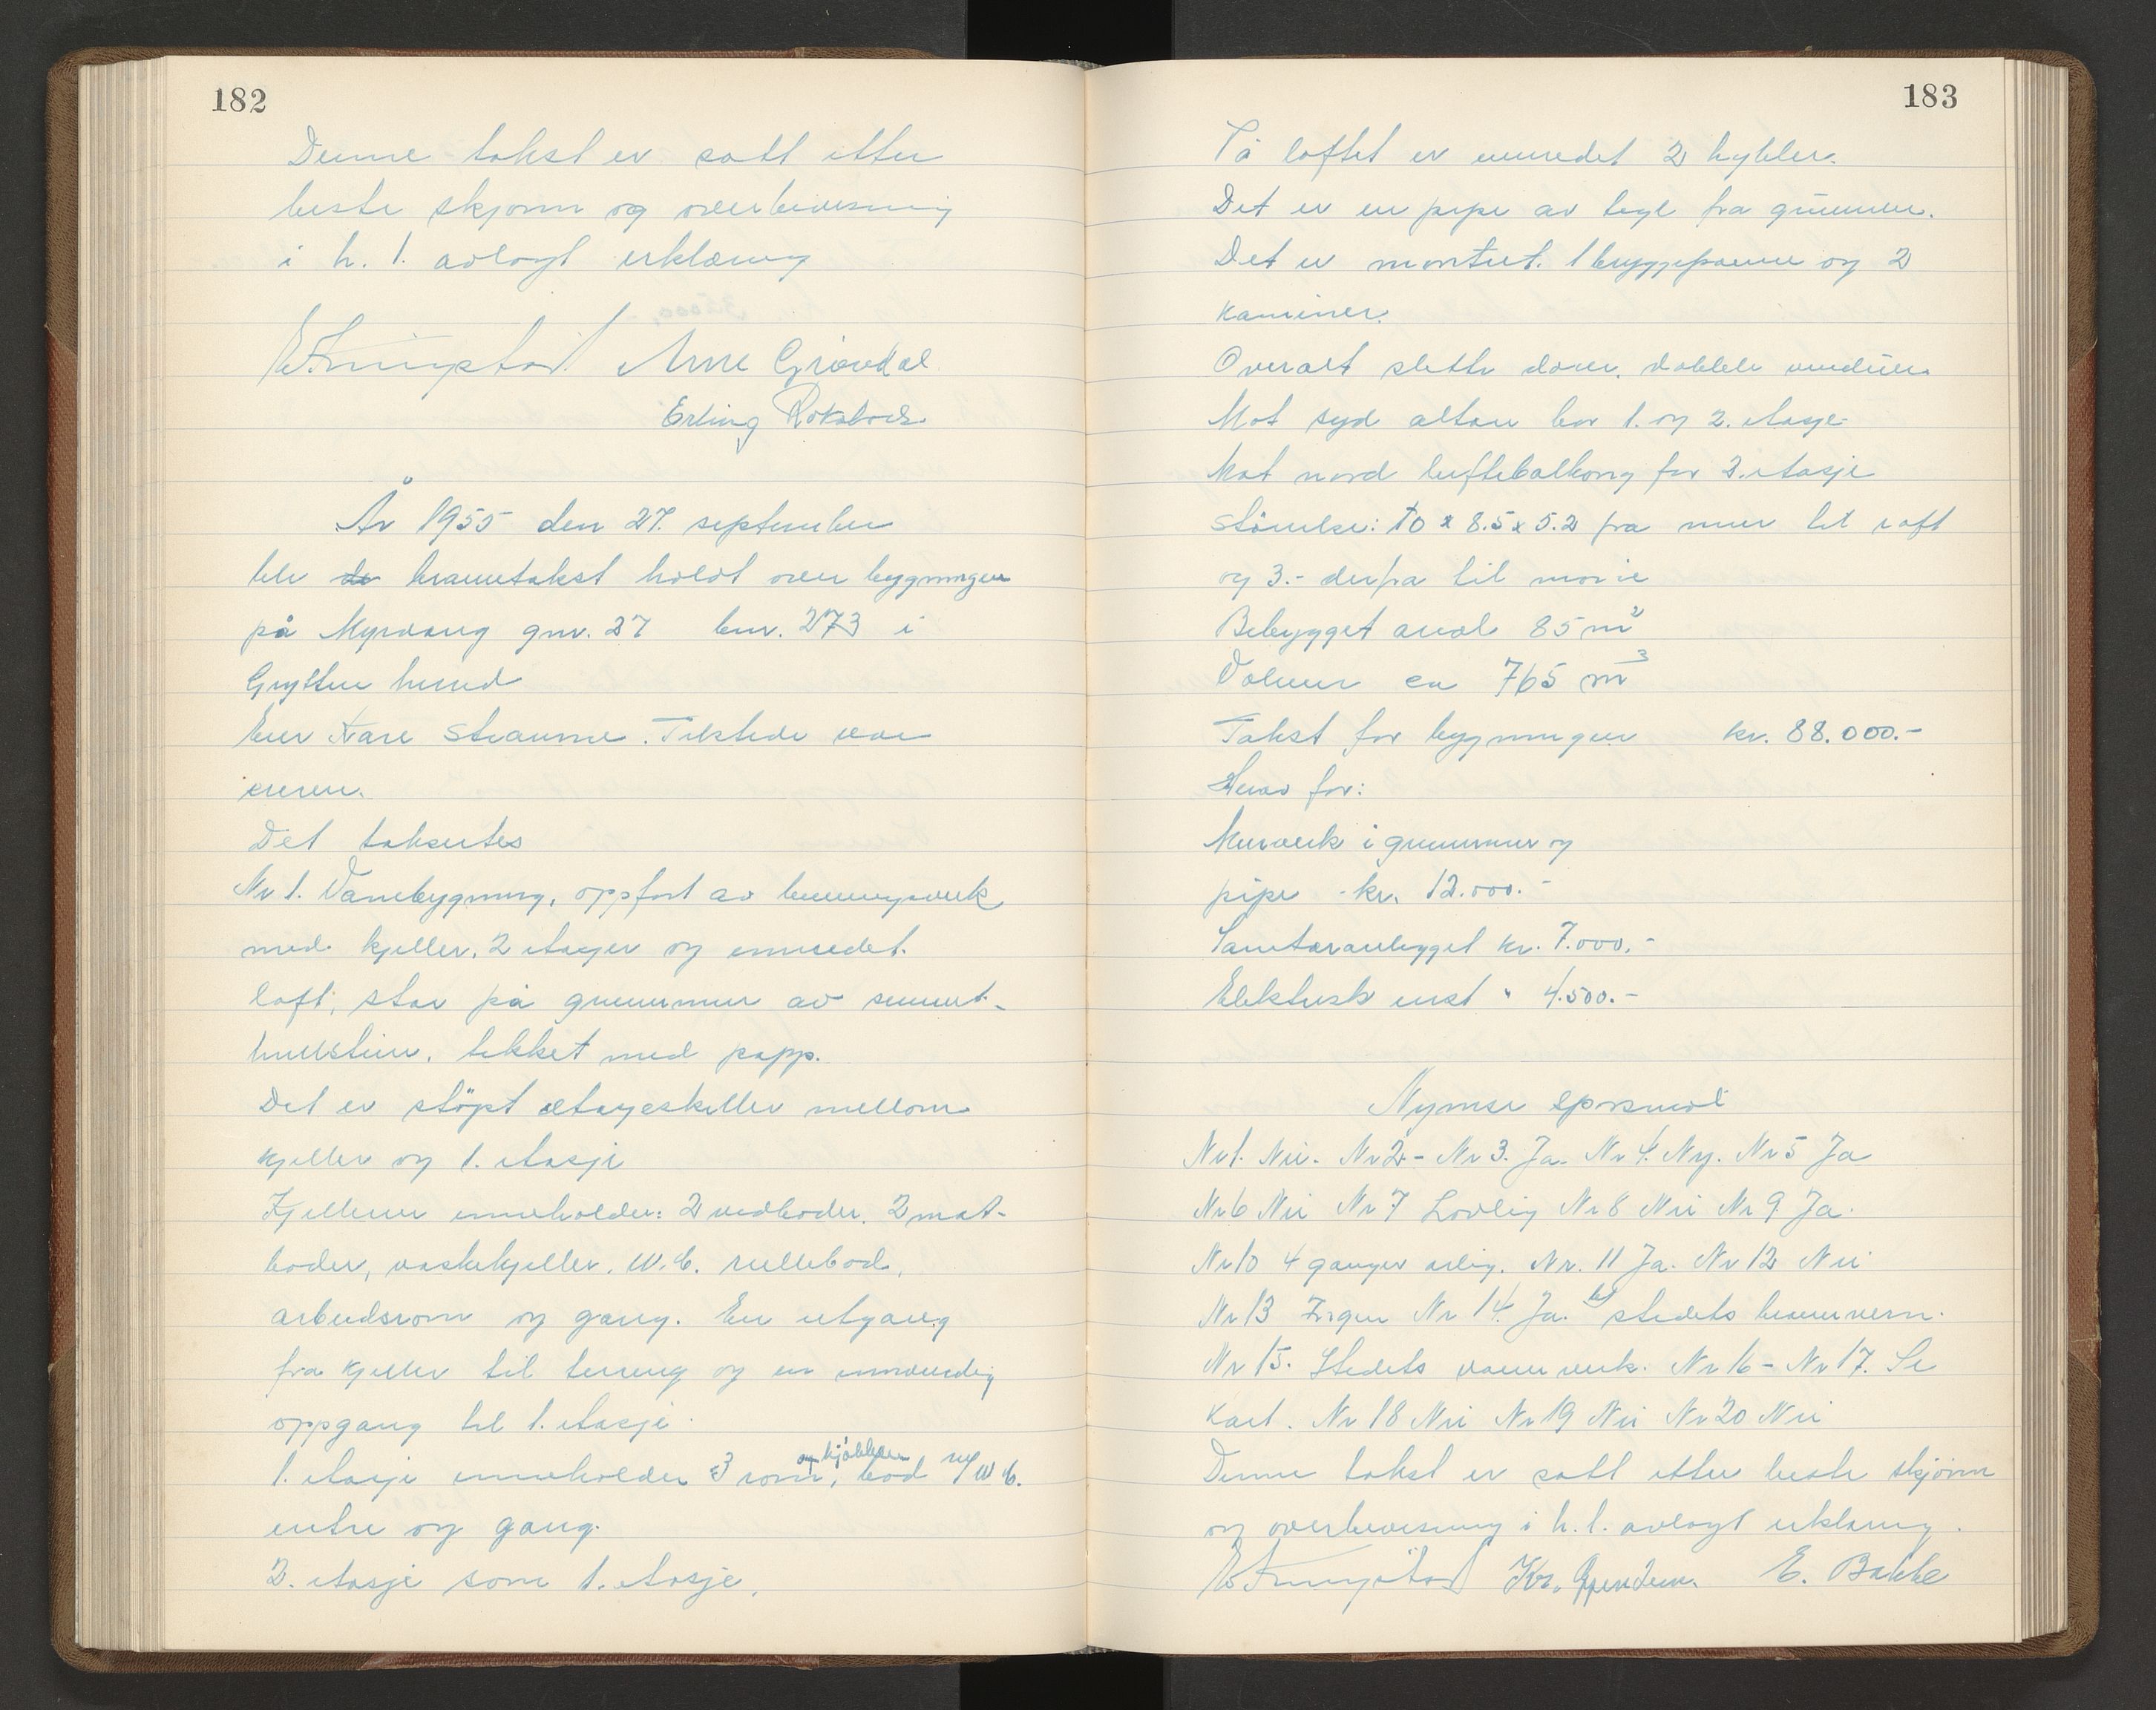 182
Denne takst er satt etter
beste skjønn og overbevisning
i h. t. avlagt erklæring
Arne Grøvdal
Erling
År 1955 den 27. september
ble de branntakst holdt over bygningen
på Myrvang gnr. 27 bnr. 273 i
Grytten herred
Eier Kåre Straume. Tilstede var
eieren.
Det taksertes
Nr 1. Vånebygning, oppført av bindingsverk
med kjeller, 2 etager og innredet
loft, står på grunnmur av sement-
hullstein, tekket med papp.
Det er støpt etageskiller mellom
kjeller og 1. etasje
Kjelleren inneholder: 2 vedboder, 2 mat-
boder, vaskekjeller, W.C. rullebod,
arbeidsrom og gang. En utgang
fra kjeller til terreng og en innvendig
oppgang til 1. etasje.
1. etasje inneholder 3 rom og kjøkken, bod m/ W C.
entre og gang.
2. etasje som 1. etasje.
183
På loftet er innredet 2 hybler.
Det er en pipe av tegl fra grunnen.
Det er montert 1 bryggepanne og 2
kaminer.
Overalt slette dører, doble vinduer
Mot syd altan for 1. og 2. etasje
Mot nord luftebalkong for 2. etasje
Størrelse: 10 x 8.5 x 5.2 fra mur til raft
og 3.- derfra til møne
Bebygget areal 85 m2
Volum ca 765 m3
Takst for bygningen kr. 88.000.-
Herav for:
Murverk i grunnmur og
pipe - kr. 12.000.-
Sanitæranlegget kr. 7.000.-
Elektrisk inst " 4.500.-
Nymse spørsmål
Nr 1. Nei. Nr 2 - Nr 3. Ja. Nr 4. Ny. Nr 5 Ja
Nr 6 Nei Nr 7 Lovlig Nr 8 Nei Nr 9 Ja.
Nr 10 4 ganger årlig. Nr. 11 Ja. Nr 12 Nei
Nr 13 Ingen Nr 14. Ja. til stedets brannvern.
Nr 15. Stedets vannverk. Nr 16 - Nr 17. Se
kart. Nr 18 Nei Nr 19 Nei Nr 20 Nei
Denne takst er satt etter beste skjønn
og overbevisning i h. t. avlagt erklæring.
Kr. E. Bakke